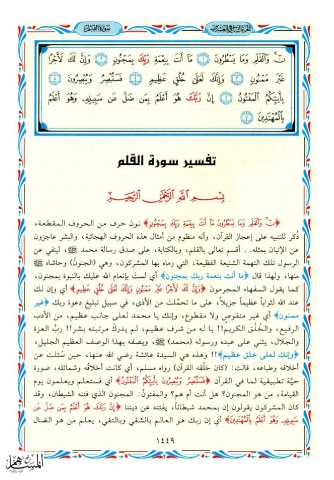 سورة القلم
نٓ وَالْقَلَمِ وَمَا يَسْطُرُونَ ۝١ مَا أَنتَ بِنِعْمَةِ رَبِّكَ بِمَجْنُونٍ ۝٢ وَإِنَّ لَكَ لَأَجْرًا
غَيْرَ مَمْنُونٍ ۝٣ وَإِنَّكَ لَعَلَىٰ خُلُقٍ عَظِيمٍ ۝٤ فَسَتُبْصِرُ وَيُبْصِرُونَ ۝٥
بِأَييِّكُمُ الْمَفْتُونُ ۝٦ إِنَّ رَبَّكَ هُوَ أَعْلَمُ بِمَن ضَلَّ عَن سَبِيلِهِ وَهُوَ أَعْلَمُ
بِالْمُهْتَدِينَ ۝٧
تفسير سورة القلم
بِسْمِ اللَّهِ الرَّحْمَٰنِ الرَّحِيمِ
﴿نٓ وَالْقَلَمِ وَمَا يَسْطُرُونَ مَا أَنتَ بِنِعْمَةِ رَبِّكَ بِمَجْنُونٍ﴾ نون حرف من الحروف المقطعة،
ذُكر للتنبيه على إعجاز القرآن، وأنه منظوم من أمثال هذه الحروف الهجائية، والبشر عاجزون
عن الإتيان بمثله.. أقسم تعالى بالقلم، وبالكتابة، على صدق رسالة محمد ﷺ، لينفي عن
الرسول تلك التهمة الشنيعة الفظيعة، التي رماه بها المشركون، وهي (الجنونُ) وحاشاه ﷺ
منها، ولهذا قال ﴿ما أنت بنعمة ربك بمجنون﴾ أي لستَ بإنعام الله عليك بالنبوة بمجنون،
كما يقول السفهاء المجرمون ﴿وَإِنَّ لَكَ لَأَجْرًا غَيْرَ مَمْنُونٍ وَإِنَّكَ لَعَلَىٰ خُلُقٍ عَظِيمٍ﴾ أي وإن لك
عند الله لثواباً عظيماً جزيلاً، على ما تحمَّلت من الأذى، في سبيل تبليغ دعوة ربك ﴿غير
ممنون﴾ أي غير منقوص ولا مقطوع، وإنك يا محمد لعلى جانب عظيم، من الأدب
الرفيع، والخُلُق الكريم!! يا له من شرف عظيم، لم يدرك مرتبته بشر!! ربُّ العزة
والجلال، يثني على عبده ورسوله (محمد) ﷺ ويصفه بهذا الوصف العظيم الجليل،
﴿وإنك لعلى خلق عظيم﴾!! وهذه هي السيدة عائشة رضي الله عنها، حين سُئلت عن
أخلاقه وطباعه، قالت: (كان خلُقه القرآن) رواه مسلم، أي كانت أخلاقه وشمائله، صورة
حيَّة تطبيقية لما في القرآن ﴿فَسَتُبْصِرُ وَيُبْصِرُونَ بِأَييِّكُمُ الْمَفْتُونُ﴾ أي فستعلم ويعلمون يوم
القيامة، من هو المجنون؟ هل أنت أم هم؟ والمفتونُ: المجنون الذي فتنه الشيطان، وقد
كان المشركون يقولون إن بمحمد شيطاناً، يفتنه عن ديننا ﴿إِنَّ رَبَّكَ هُوَ أَعْلَمُ بِمَن ضَلَّ عَن
سَبِيلِهِ وَهُوَ أَعْلَمُ بِالْمُهْتَدِينَ﴾ أي إن ربك هو العالم بالشقي وبالتقي، يعلم من هو الضال
١٤٤٩